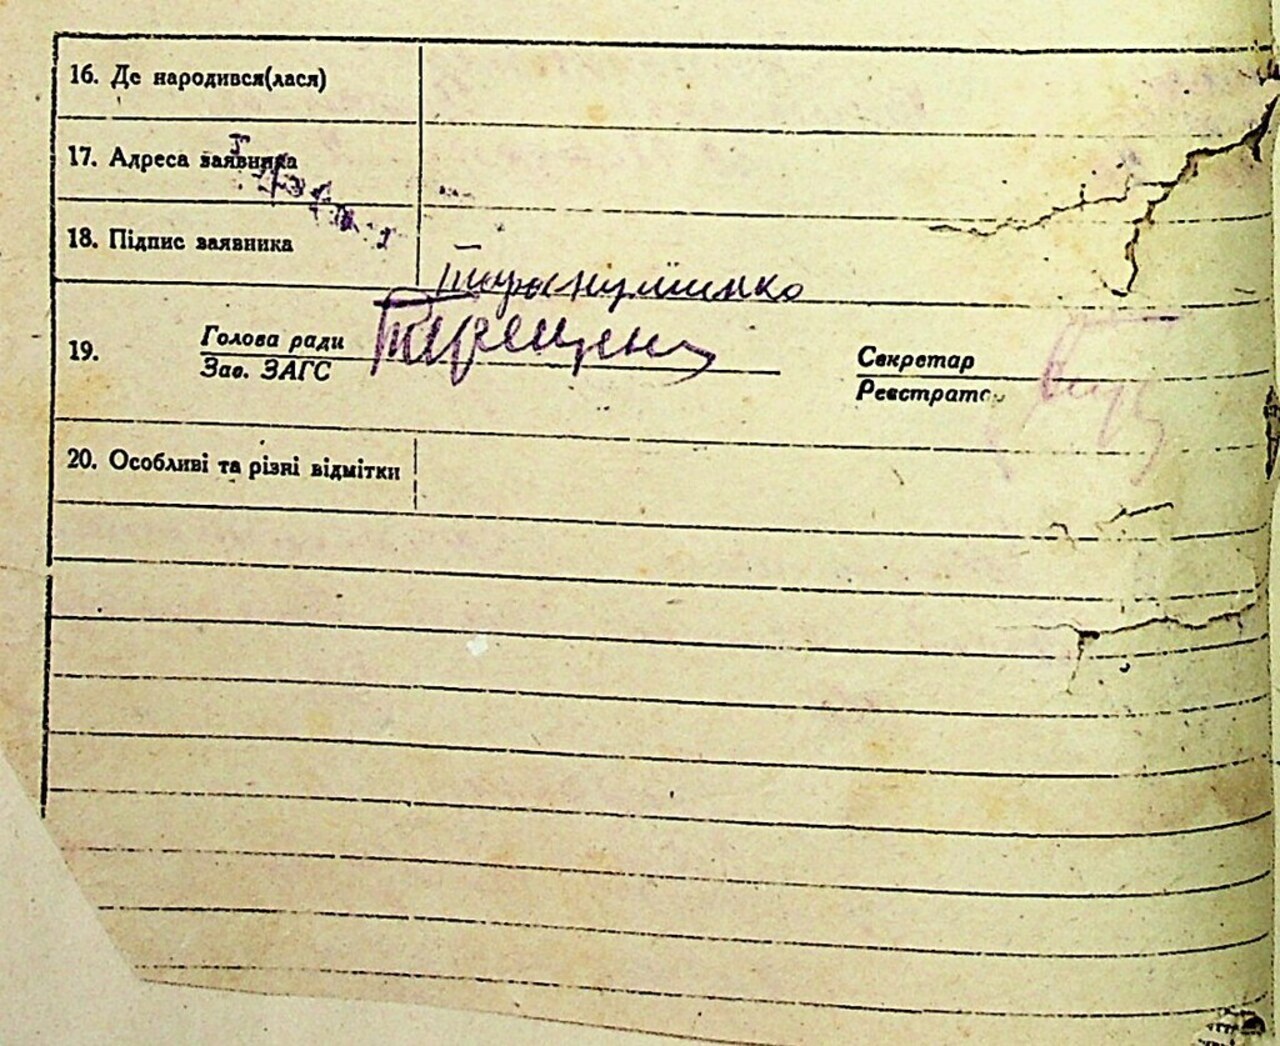 16. Де народився(лася)
17. Адреса заявника
18. Підпис заявника
19. Голова ради
Зав. ЗАГС
Секретар
Реєстратор
20. Особливі та різні відмітки